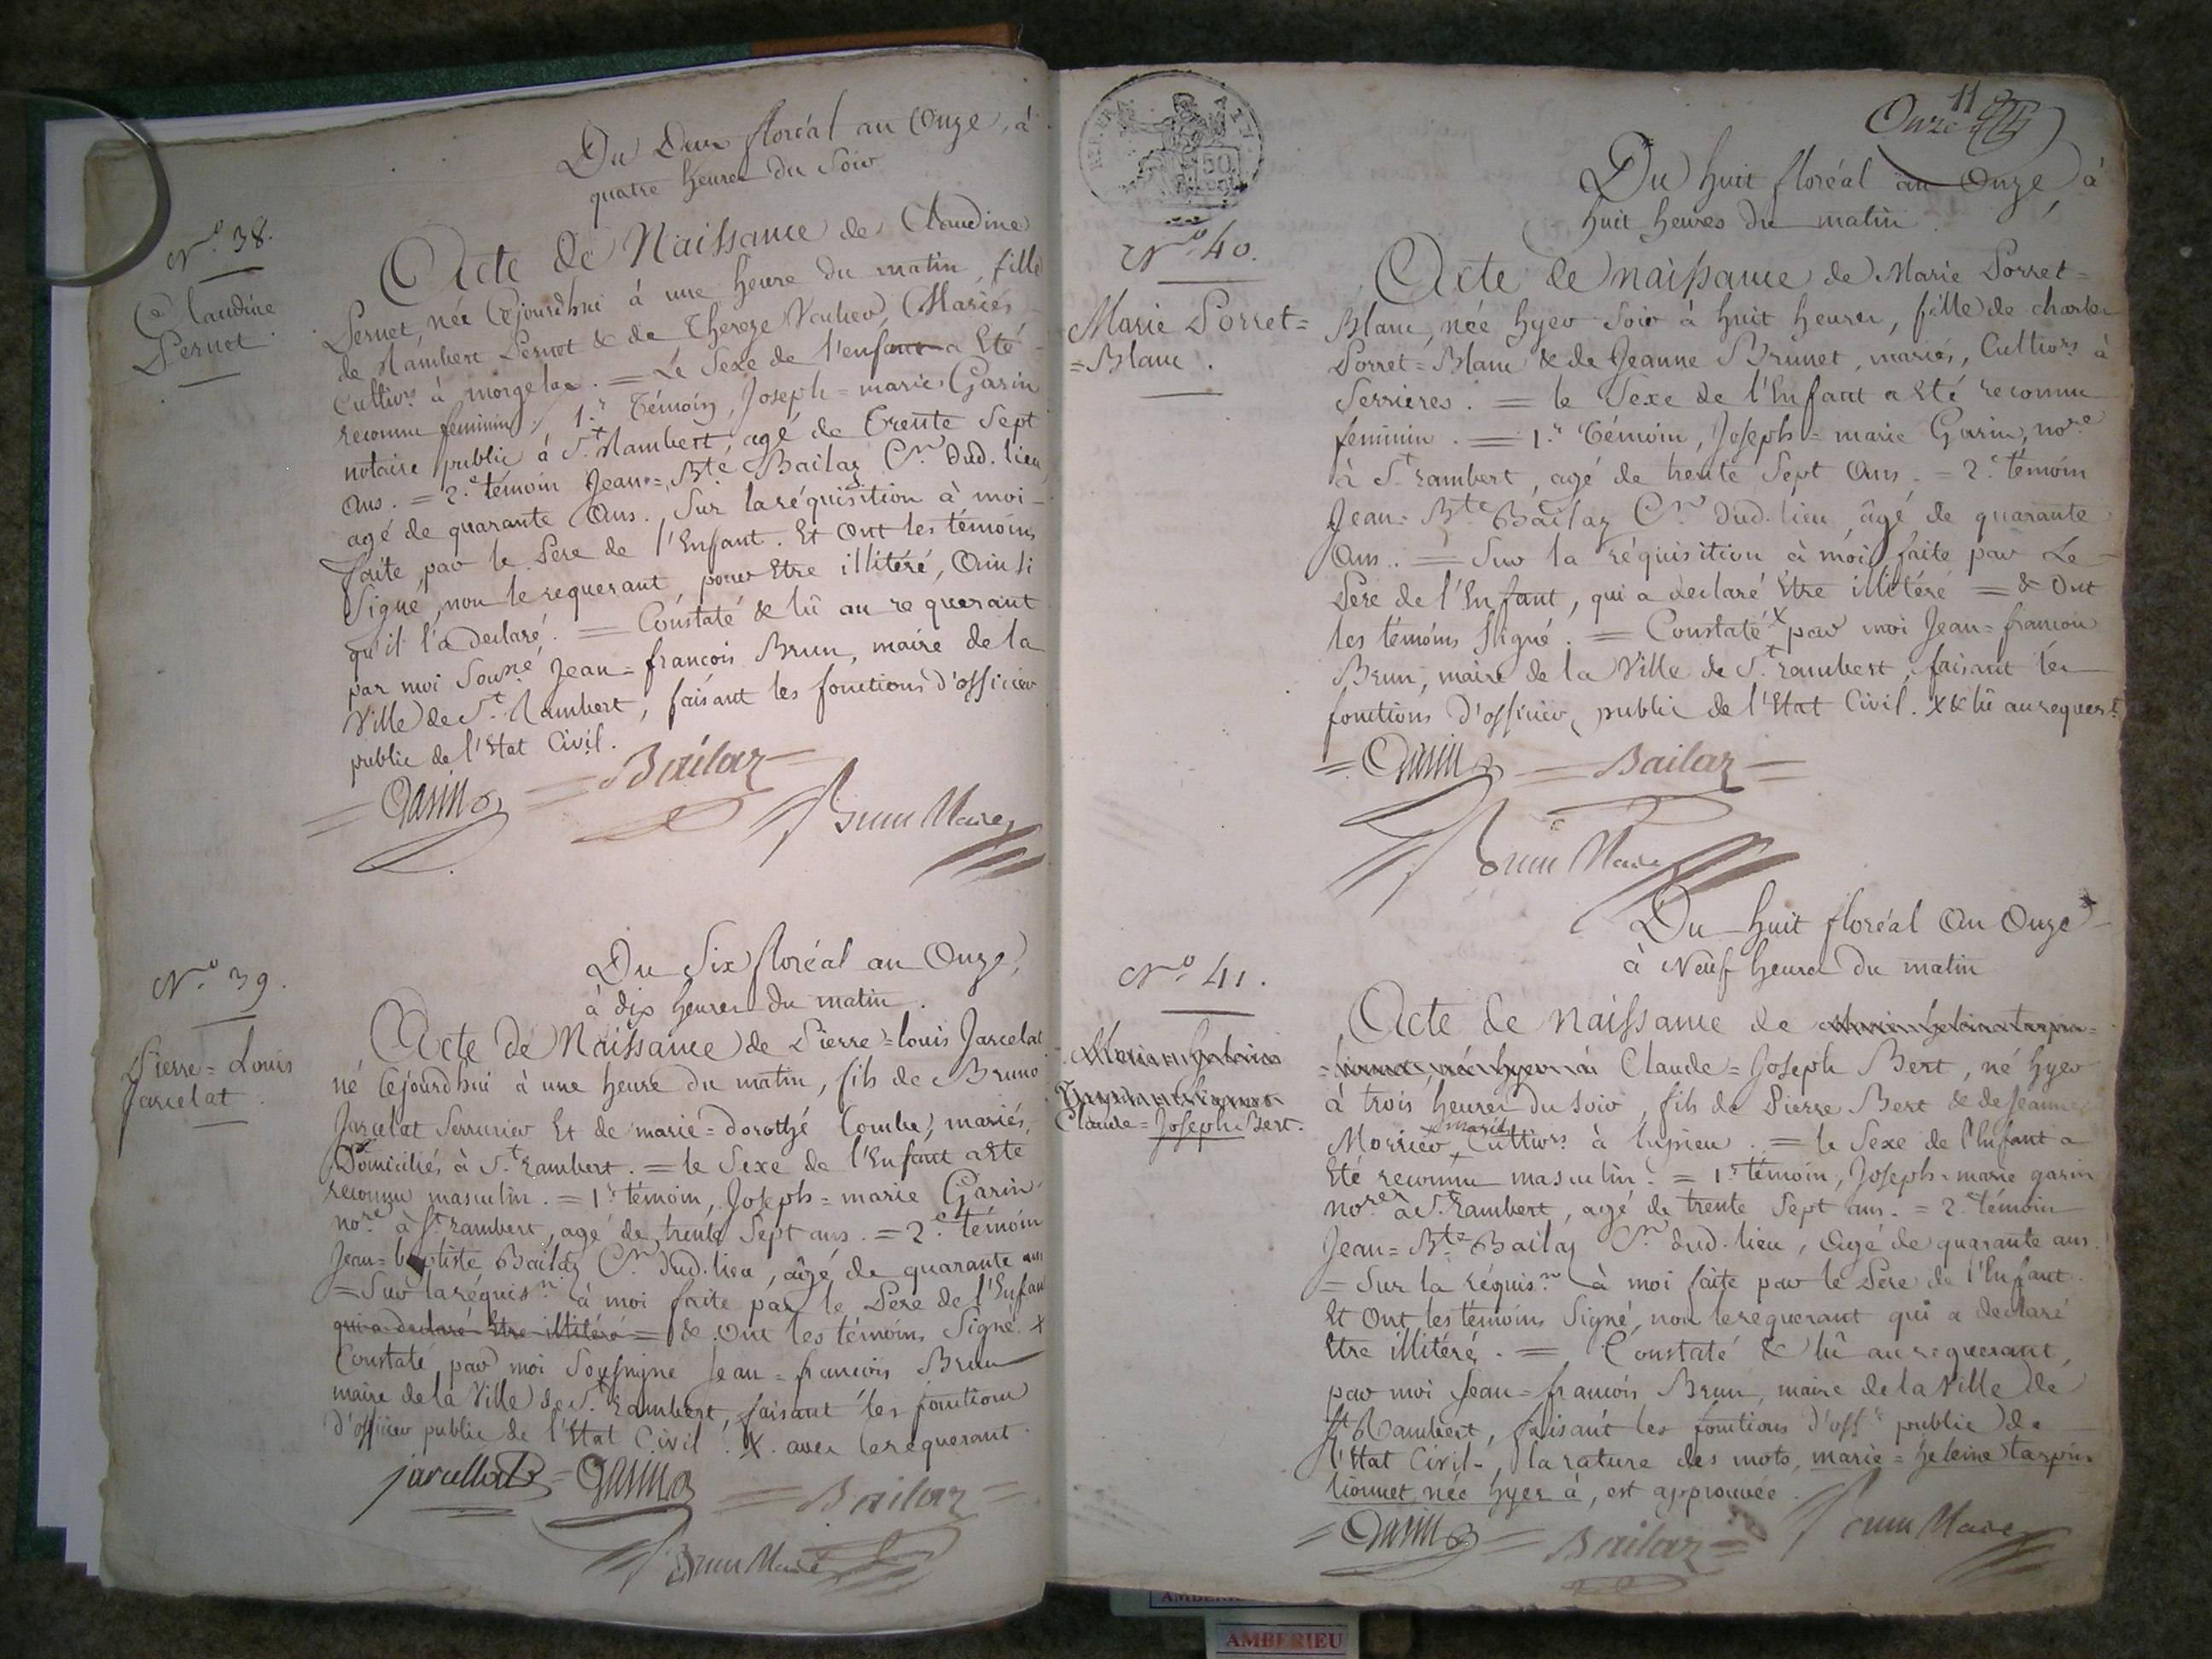 Du Deux floréal an Onze, à
quatre heures du Soir
N.º 38.
Claudine
Pernet.
Acte de Naissance de Claudine
Pernet, née Cejourdhui à une heure du matin, fille
de Rambert Pernet & de Thereze Vaulier Mariés
Cultivrs à morgelas. = Le Sexe de l'enfant a Eté
reconnu feminin. 1.r Témoin, Joseph = marie Garin
notaire public à S.t Rambert, agé de Trente Sept
Ans. = 2.e témoin Jean = Bte Bailaz Cn dud. lieu,
agé de quarante Ans. Sur la réquisition à moi
faite, par le Pere de l'Enfant. Et ont les témoins
Signé, non le requerant, pour Etre illitéré, Ainsi
qu'il l'a declaré. = Constaté & lû au requerant
par moi Sousné Jean = francois Brun, maire de la
Ville de S.t Rambert, faisant les fonctions d'officier
public de l'Etat Civil.
= Garin = Bailaz =
Brun Maire
Du Six floréal an Onze,
à dix heures du matin.
N.º 39.
Pierre = Louis
Jarcelat.
Acte de Naissance de Pierre = louis Jarcelat
né Cejourdhui à une heure du matin, fils de Bruno
Jarcelat Serrurier Et de marie = dorothé Combe, mariés,
Domiciliés à S.t rambert. = le Sexe de l'Enfant a été
reconnu masculin. = 1.r témoin, Joseph = marie Garin
no.re à S.t rambert, agé de trente Sept ans. = 2.e témoin
Jean = baptiste Bailaz Cn dud. lieu, âgé de quarante ans
= Sur la réquis.n à moi faite par le Pere de l'Enfant
qui a declaré Etre illitéré = & ont les témoins Signé. X
Constaté par moi Sousigné Jean = francois Brun
maire de la Ville de S.t rambert, faisant les fonctions
d'officier public de l'Etat Civil. X. avec le requerant.
jarcellat = Garin = Bailaz =
Brun Maire
11
Onze
50
Du huit floréal an Onze, à
huit heures du matin.
N.º 40.
Marie Porret =
= Blanc.
Acte de naissance de Marie Porret =
Blanc, née hyer Soir à huit heures, fille de charles
Porret = Blanc & de Jeanne Brunet, mariés, Cultivrs à
Serrieres. = le Sexe de l'Enfant a Eté reconnu
feminin. = 1.r Témoin, Joseph = marie Garin, no.re
à S.t rambert, agé de trente Sept Ans. = 2.e témoin
Jean = Bte Bailaz Cn dud. lieu âgé de quarante
Ans. = Sur la réquisition à moi faite par Le
Pere de l'Enfant, qui a declaré Etre illitéré = & Ont
les témoins Signé. = Constaté X par moi Jean = francois
Brun, maire de la Ville de S.t rambert, faisant les
fonctions d'officier public de l'Etat Civil. X & lû au requert.
= Garin = Bailaz =
Brun Maire
Du huit floréal An Onze
à Neuf heures du matin
N.º 41.
Claude = Joseph Bert.
Acte de naissance de
Claude = Joseph Bert, né hyer
à trois heures du soir, fils de Pierre Bert & de Jeanne
Morrier X mariés Cultivrs à lupieu. = le Sexe de l'Enfant a
Eté reconnu masculin. = 1.r témoin, Joseph = marie garin
no.re à S.t Rambert, agé de trente Sept ans. = 2.e témoin
Jean = Bte Bailaz Cn dud. lieu, Agé de quarante ans.
= Sur la réquis.n à moi faite par le Pere de l'Enfant.
Et Ont les témoins Signé, non le requerant qui a declaré
Etre illitéré. = Constaté & lû au requerant,
par moi Jean = francois Brun, maire de la Ville de
S.t Rambert, faisant les fonctions d'off.r public de
l'Etat Civil -, la rature des mots, marie = heleine
née hyer à, est approuvée.
= Garin = Bailaz =
Brun Maire
AMBERIEU